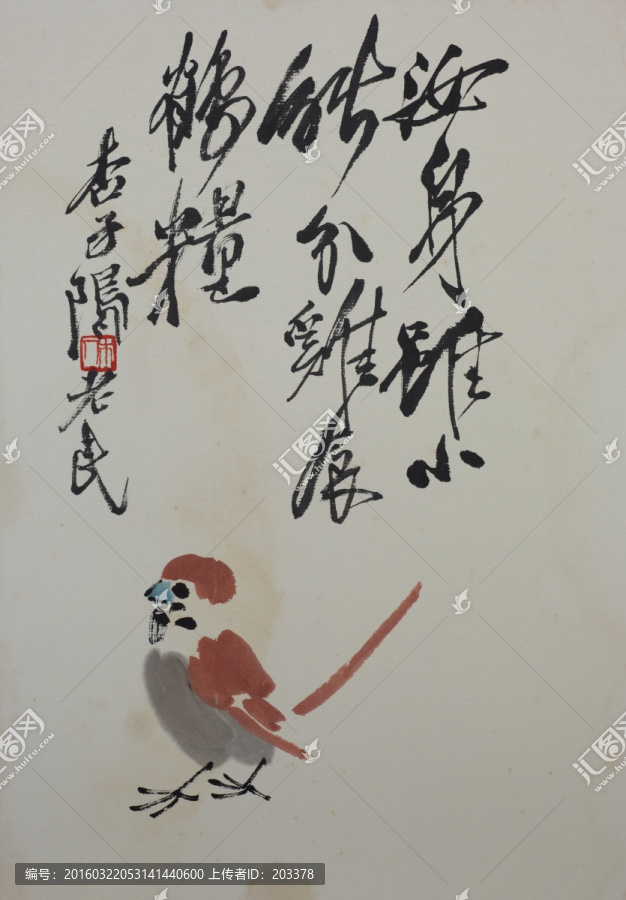 汝身雖小
能分雞食
鶴糧
杏子隖老民
汇图网
www.huitu.com
编号：20160322053141440600 上传者ID：203378